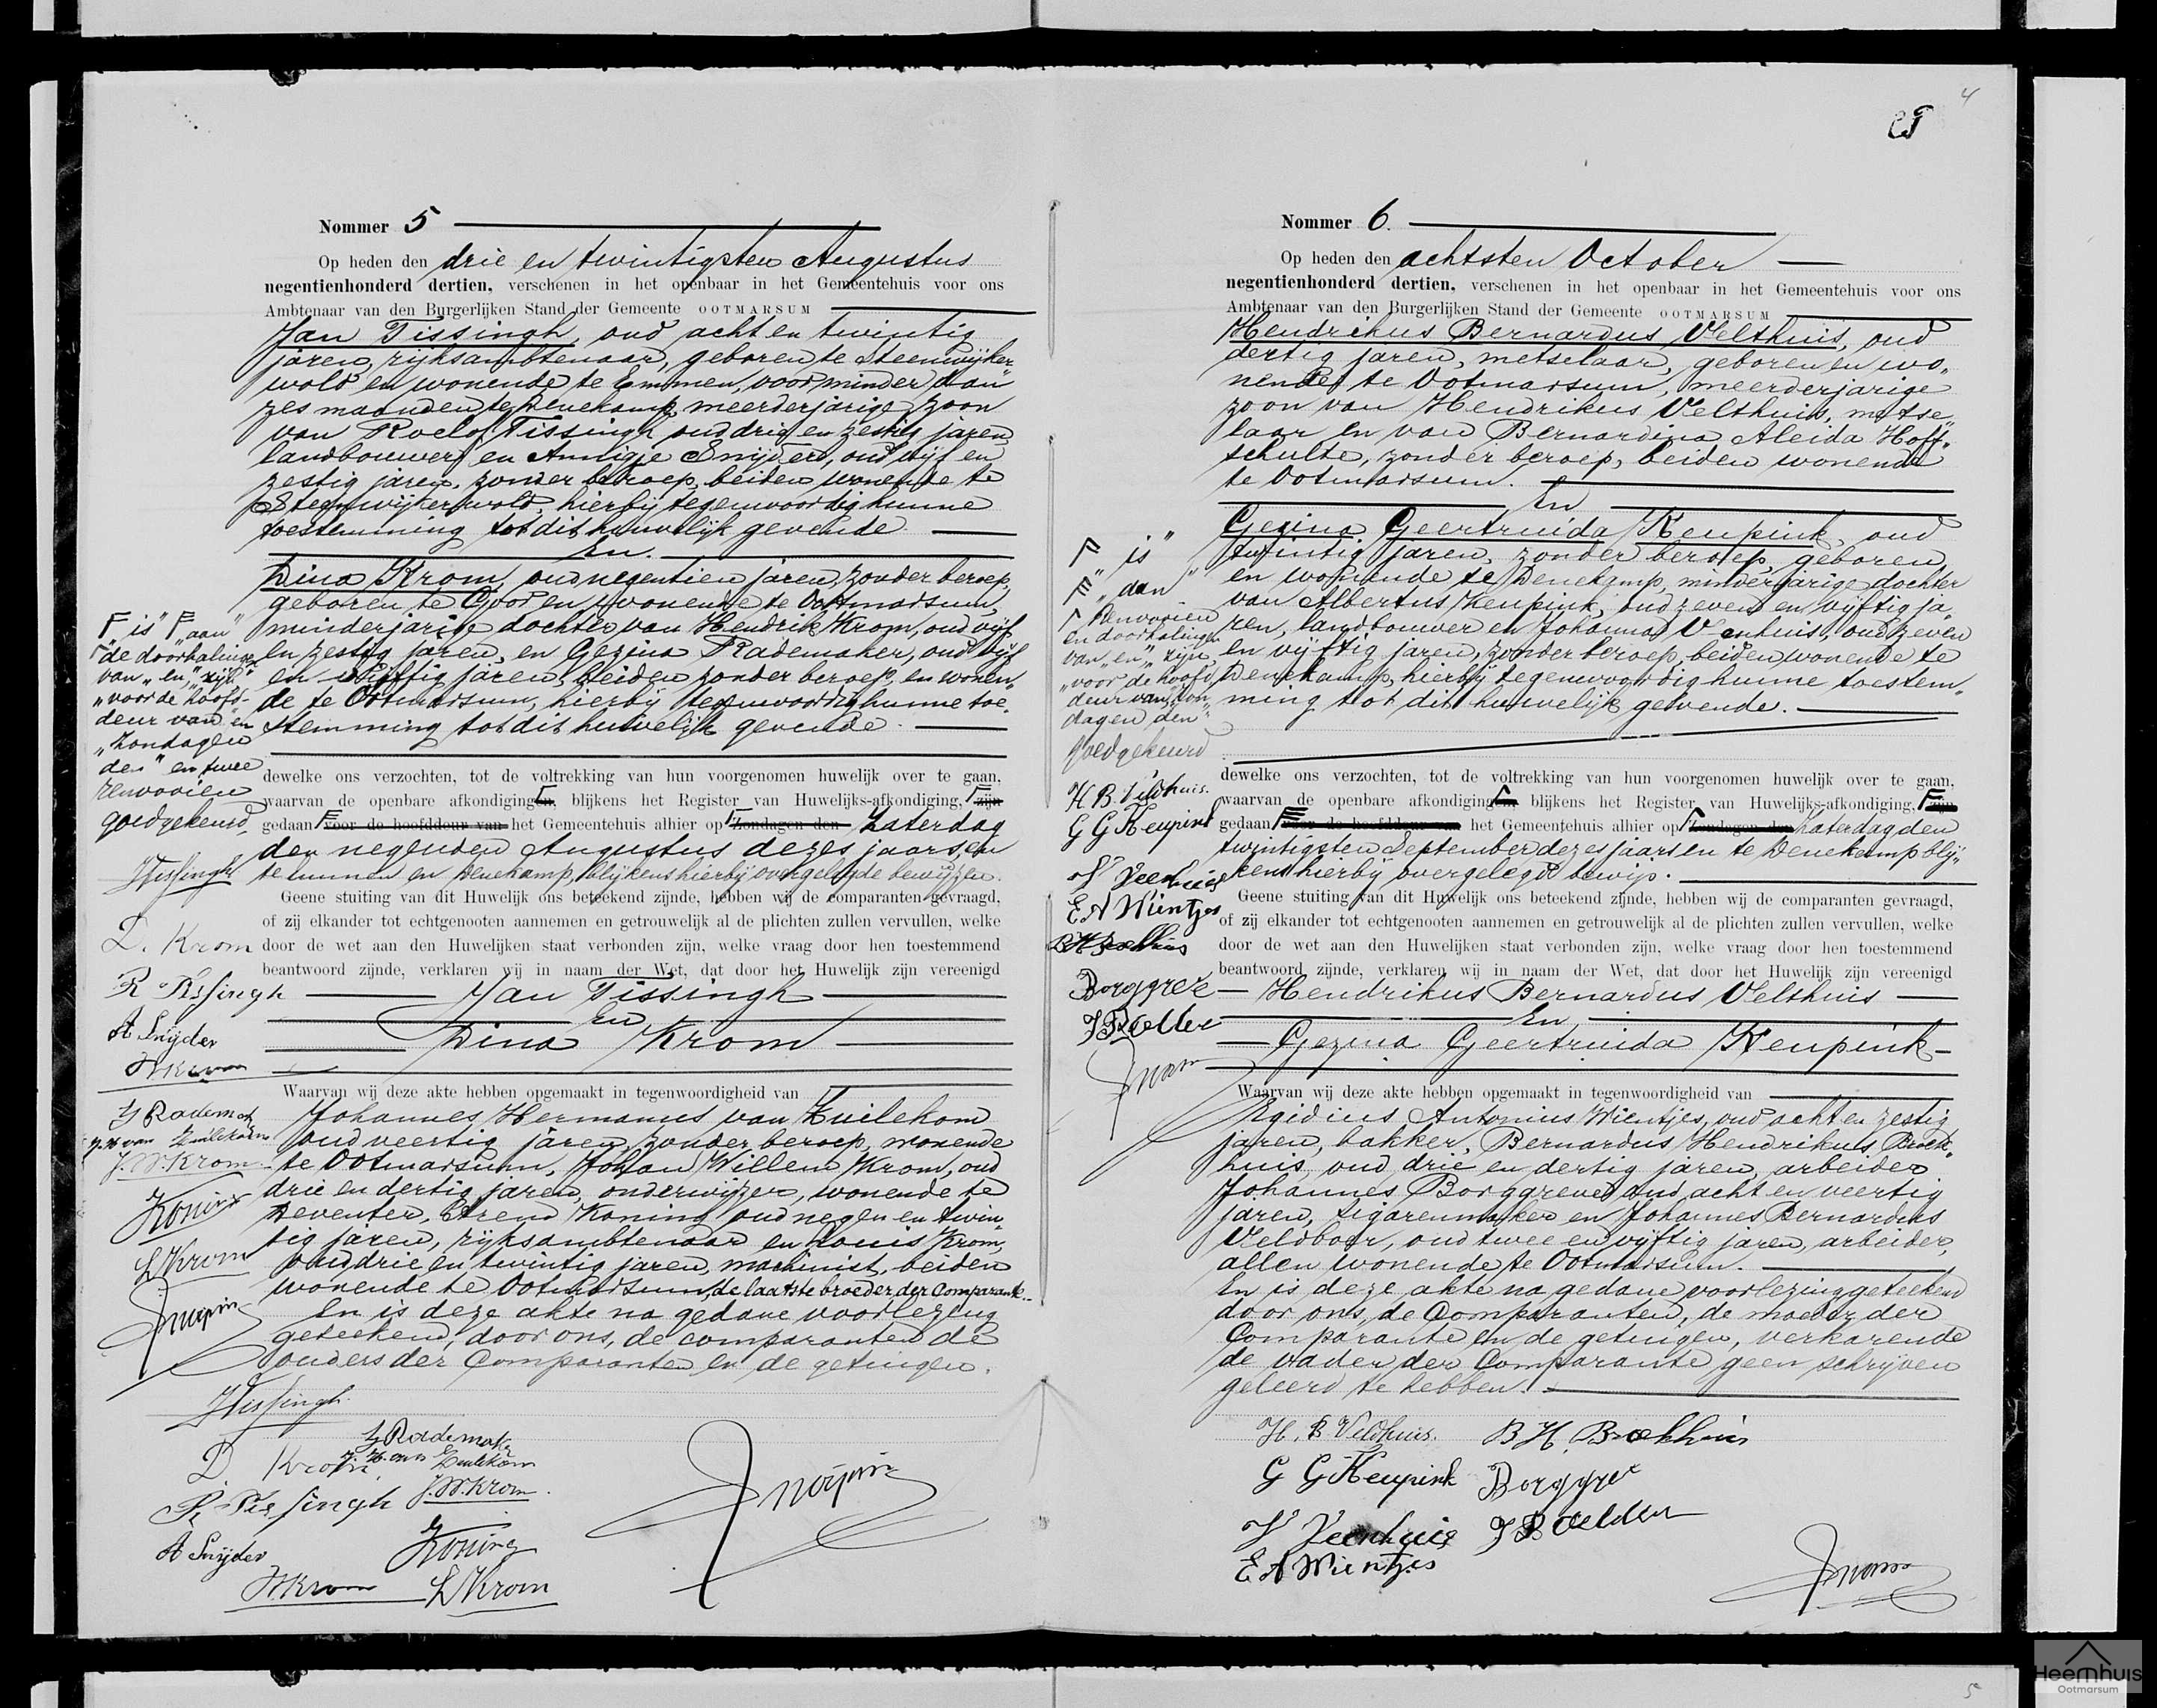 4
Nommer 5
Op heden den drie en twintigsten Augustus
negentienhonderd dertien, verschenen in het openbaar in het Gemeentehuis voor ons
Ambtenaar van den Burgerlijken Stand der Gemeente OOTMARSUM
Jan Tissingh, oud acht en twintig
jaren, rijksambtenaar, geboren te Steenwijker-
wold en wonende te Emmen, voor minder dan
zes maanden te Denekamp, meerderjarige zoon
van Roelof Tissingh oud drie en zestig jaren,
landbouwer en Annigje Snijders, oud vijf en
zestig jaren, zonder beroep, beiden wonende te
Steenwijkerwold, hierbij tegenwoordig hunne
toestemming tot dit huwelijk gevende
En.
Dina Krom, oud negentien jaren, zonder beroep,
geboren te Goor en wonende te Ootmarsum,
minderjarige dochter van Hendrik Krom, oud vijf
en zestig jaren, en Gezina Rademaker, oud vijf
en vijftig jaren, beiden zonder beroep, en wonen-
de te Ootmarsum, hierbij tegenwoordig hunne toe-
stemming tot dit huwelijk gevende
dewelke ons verzochten, tot de voltrekking van hun voorgenomen huwelijk over te gaan,
waarvan de openbare afkondigingen, blijkens het Register van Huwelijks-afkondiging, zijn
gedaan voor de hoofddeur van het Gemeentehuis alhier op Zondagen den Zaterdag
den negenden Augustus dezes jaars, en
te Emmen en Denekamp, blijkens hierbij overgelegde bewijzen.
Geene stuiting van dit Huwelijk ons beteekend zijnde, hebben wij de comparanten gevraagd,
of zij elkander tot echtgenooten aannemen en getrouwelijk al de plichten zullen vervullen, welke
door de wet aan den Huwelijken staat verbonden zijn, welke vraag door hen toestemmend
beantwoord zijnde, verklaren wij in naam der Wet, dat door het Huwelijk zijn vereenigd
Jan Tissingh
en
Dina Krom
Waarvan wij deze akte hebben opgemaakt in tegenwoordigheid van
Johannes Hermannus van Zuilekom
oud veertig jaren, zonder beroep, wonende
te Ootmarsum, Johan Willem Krom, oud
drie en dertig jaren, onderwijzer, wonende te
Deventer, Arend Koning oud negen en twin-
tig jaren, rijksambtenaar en Louis Krom,
oud drie en twintig jaren, machinist, beiden
wonende te Ootmarsum, de laatste broeder der Comparante.
En is deze akte na gedane voorlezing
geteekend, door ons, de comparanten de
ouders der Comparanten en de getuigen.
is" "aan"
de doorhalingen
van "en", "zijn"
"voor de hoofd-
deur van" en
"Zondagen
den" en twee
renvooien
goedgekeurd,
JTissingh
D. Krom
R Tissingh
A Snijder
HKrom
G Rademak
J. H. van Zuilekom
J. W. Krom
Koning
L Krom
JTissingh
D Krom
R Tissingh
A Snijder
HKrom
G Rademaker
J. H. van Zuilekom
J. W. Krom
Koning
L Krom
Nommer 6.
Op heden den achtsten October
negentienhonderd dertien, verschenen in het openbaar in het Gemeentehuis voor ons
Ambtenaar van den Burgerlijken Stand der Gemeente OOTMARSUM
Hendrikus Bernardus Velthuis, oud
dertig jaren, metselaar, geboren en wo-
nende te Ootmarsum, meerderjarige
zoon van Hendrikus Velthuis, metse-
laar en van Bernardina Aleida Hoff-
schulte, zonder beroep, beiden wonende
te Ootmarsum.
En
Gezina Geertruida Keupink, oud
twintig jaren, zonder beroep, geboren
en wonende te Denekamp, minderjarige dochter
van Albertus Keupink, oud zeven en vijftig ja-
ren, landbouwer en Johanna Veenhuis, oud zeven
en vijftig jaren, zonder beroep, beiden wonende te
Denekamp, hierbij tegenwoordig hunne toestem-
ming tot dit huwelijk gevende.
dewelke ons verzochten, tot de voltrekking van hun voorgenomen huwelijk over te gaan,
waarvan de openbare afkondigingen, blijkens het Register van Huwelijks-afkondiging, zijn
gedaan voor de hoofddeur van het Gemeentehuis alhier op Zondagen den Zaterdag den
twintigsten September dezes jaars en te Denekamp blij-
kens hierbij overgelegd bewijs.
Geene stuiting van dit Huwelijk ons beteekend zijnde, hebben wij de comparanten gevraagd,
of zij elkander tot echtgenooten aannemen en getrouwelijk al de plichten zullen vervullen, welke
door de wet aan den Huwelijken staat verbonden zijn, welke vraag door hen toestemmend
beantwoord zijnde, verklaren wij in naam der Wet, dat door het Huwelijk zijn vereenigd
Hendrikus Bernardus Velthuis
En
Gezina Geertruida Keupink
Waarvan wij deze akte hebben opgemaakt in tegenwoordigheid van
Egidius Antonius Wientjes, oud acht en zestig
jaren, bakker, Bernardus Hendrikus Broek-
huis, oud drie en dertig jaren, arbeider
Johannes Borggreve oud acht en veertig
jaren, sigarenmaker en Johannes Bernardus
Veldboer, oud twee en vijftig jaren, arbeider,
allen wonende te Ootmarsum.
En is deze akte na gedane voorlezing geteekend
door ons, de Comparanten, de moeder der
Comparante en de getuigen, verkarende
de vader der Comparante geen schrijven
geleerd te hebben.
"is"
"aan"
Renvooien
en doorhalingen
van "en", "zijn
"voor de hoofd
deur van", "Zon
dagen den"
goedgekeurd
H. B. Veldhuis.
G G Keupink
J Veenhuis
E A Wientjes
B H Broekhuis
Borggreve
H. B Veldhuis.
G G Keupink
J Veenhuis
E A Wientjes
B H. Broekhuis
Borggreve
5
Heemhuis
Ootmarsum